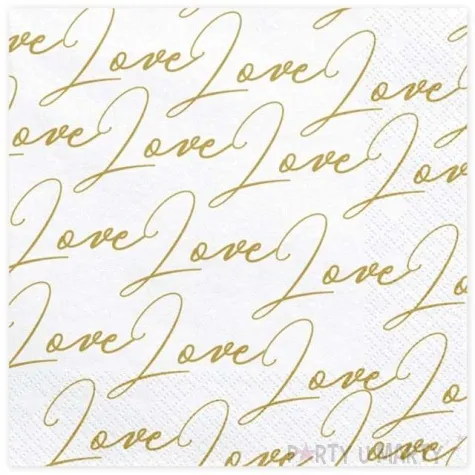 ove Love Love Love
ove Love Love Love
Love Love Love Lo
Love Love Love Lo
Love Love
PARTY U MARTY